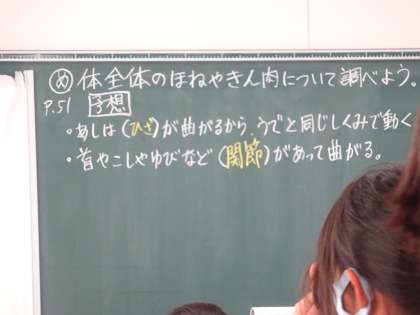 め 体全体のほねやきん肉について調べよう。
P.51 予想
・あしは(ひざ)が曲がるから、うでと同じしくみで動く
・首やこしやゆびなど(関節)があって曲がる。